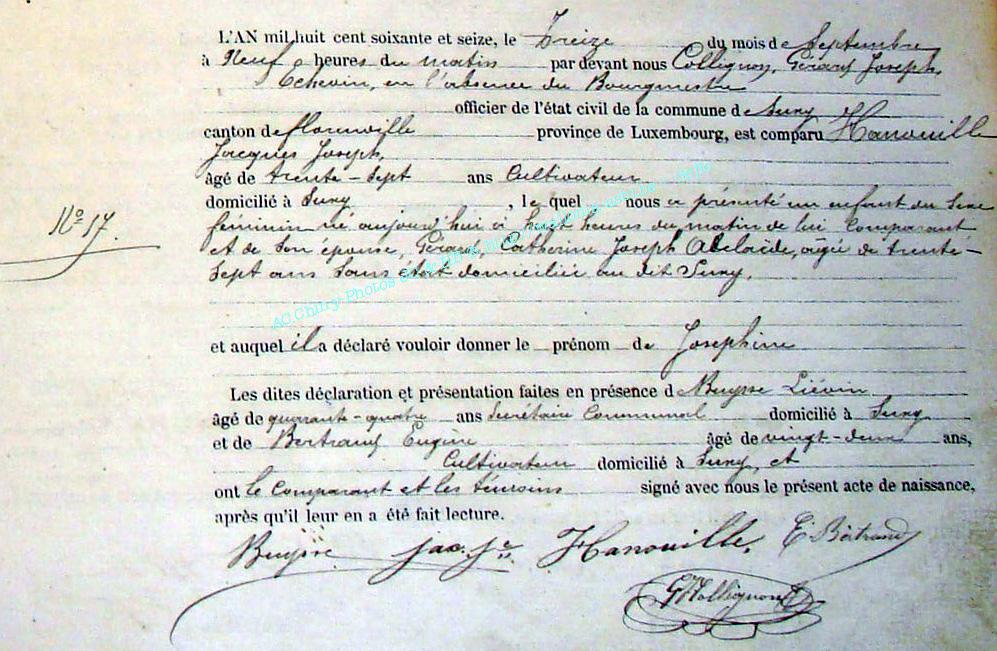 L'AN mil huit cent soixante et seize, le Treize du mois de Septembre
à Neuf heures du matin par devant nous Collignon, Gérard Joseph,
Echevin, en l'absence du Bourgmestre
officier de l'état civil de la commune de Suny
canton de florenville province de Luxembourg, est comparu Hanouille
Jacques Joseph,
âgé de trente-sept ans Cultivateur
domicilié à Suny, le quel nous a présenté un enfant du Sexe
N° 17.
féminin né aujourd'hui à huit heures du matin de lui Comparant
et de son épouse, Gérard, Catherine Joseph Adelaïde, agée de trente-
Sept ans sans état domiciliée au dit Suny,
AC Chiny Photos
et auquel il a déclaré vouloir donner le prénom de Josephine
Les dites déclaration et présentation faites en présence de Buysse Liévin
âgé de quarante-quatre ans Secrétaire Communal domicilié à Suny
et de Bertrand Eugène âgé de vingt-deux ans,
Cultivateur domicilié à Suny, et
ont le Comparant et les témoins signé avec nous le présent acte de naissance,
après qu'il leur en a été fait lecture.
Buysse jac. js. Hanouille, E Bertrand
GJCollignon